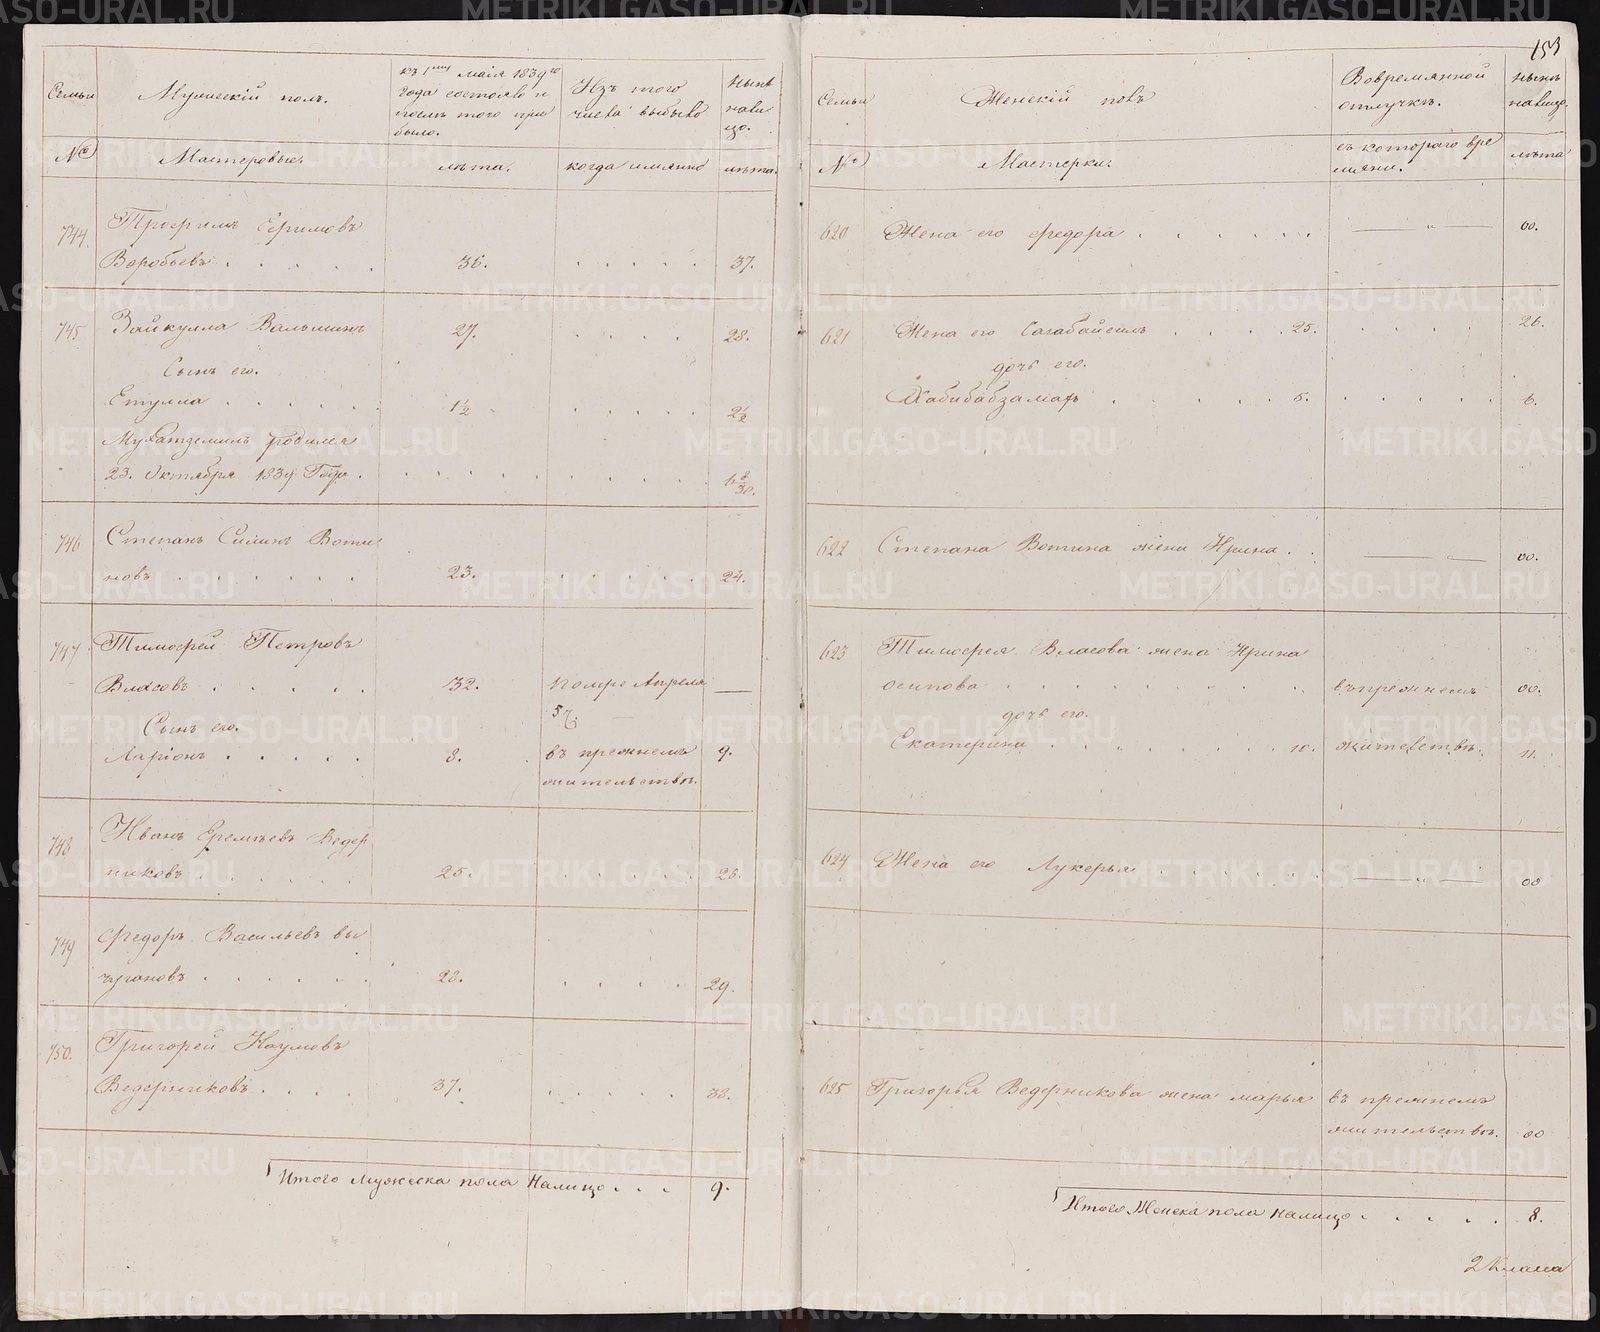 153
Семьи
Мужескій полъ.
къ 1му маія 1839го
года состояло и
послѣ того при
было.
Изъ того
числа выбыло
Нынѣ
нали
цо.
№
Мастеровые.
лѣта.
когда имянно
лѣта.
744.
Трофимъ Ефимовъ
Воробьевъ . . . . . 36. . . . . . 37.
745
Зайкулла Вальшинъ 27. . . . . 28.
Сынъ его.
Етулла . . . . . . 1½ . . . . . 2½
родился
23. Октября 1839 Года .
746
Степанъ Силинъ Воти
новъ . . . . . . 23. . . . . . 24.
747
Тимофей Петровъ
Власовъ . . . . . 32. помре Апреля —
5/7.
Сынъ его.
Ларіонъ . . . . . 8. въ прежнемъ 9.
жительствѣ.
748
Иванъ Еремѣевъ Ведер
никовъ . . . . . 25. . . . . . 26.
749
Федоръ Васильевъ вы
чугановъ . . . . . . 28. . . . . 29.
750.
Григорей Наумовъ
Ведерниковъ . . . . 37. . . . . . 38.
Итого Мужеска пола Налицо . . . 9.
Семьи
Женскій полъ
Вовремянной
отлучкѣ.
нынѣ
налицо.
№
Мастерки.
съ котораго вре
мяни.
лѣта
620
Жена его федора . . . . . . — „ — 00.
621
Жена его Сагабайсиль . . . . 25. . . . . 26.
дочь его.
Хабибабзамал . . . . . 5. . . . . . 6.
622
Степана Вотина жена Ирина . . — 00.
623
Тимофея Власова жена Ирина
осипова . . . . . . . . . въпрежнемъ 00.
дочь его.
Екатерина . . . . . . . . 10. жителствѣ. 11.
624
Жена его Лукерья . . . . . . — . . — 00
625
Григорья Ведерникова жена марья въ прежнемъ
жительствѣ. 00
Итого Женска пола налицо . . . . . 8.
2 Класа
METRIKI.GASO-URAL.RU